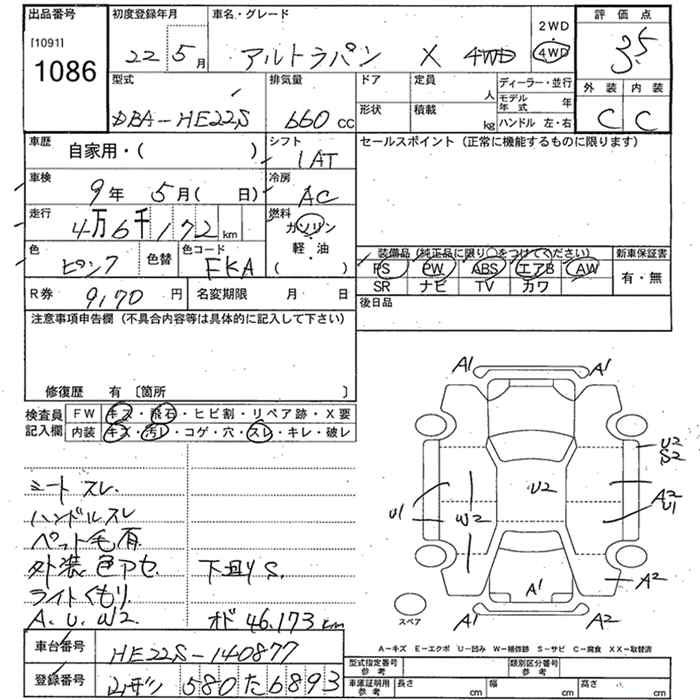 出品番号
[1091]
1086
初度登録年月
22 5月
車名・グレード
アルトラパン X 4WD
2WD
4WD
評価点
3.5
外装 内装
C C
型式
DBA-HE22S
排気量
660 cc
ドア
定員
人
形状
積載
kg
ディーラー・並行
モデル年式 年
ハンドル 左・右
車歴
自家用・( )
シフト
IAT
セールスポイント (正常に機能するものに限ります)
車検
9年 5月( 日)
冷房
AC
走行
4万6千172km
燃料
ガソリン
・
軽・油
( )
色
ピンク
色替
色コード
FKA
装備品(純正品に限り○をつけてください)
新車保証書
PS PW ABS エアB AW
有・無
SR ナビ TV カワ
R券 9,170円
名変期限 月 日
後日品
注意事項申告欄(不具合内容等は具体的に記入して下さい)
修復歴 有 〔箇所 〕
検査員記入欄
FW キズ・飛石・ヒビ割・リペア跡・X要
内装 キズ・汚レ・コゲ・穴・スレ・キレ・破レ
シート スレ.
ハンドルスレ
ペット毛有
外装 色アセ. 下廻りS.
ライトくもり.
A. U. W2 オド 46.173km
車台番号
HE22S-140877
登録番号
580 た6893
A1 A1
U2
S2
U2
A2
U1
U1
W2
A1
A2
A1 A2
スペア
A-キズ E-エクボ U-凹み W-補修跡 S-サビ C-腐食 XX-取替済
型式指定番号
参考
類別区分番号
参考
車庫証明用
参考
長さ cm
幅 cm
高さ cm